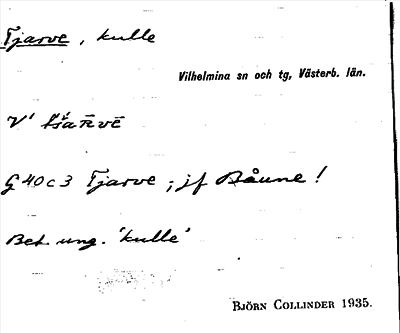 Tjarve, kulle
Vilhelmina sn och tg, Västerb. län.
V'
G 40 c 3 Tjarve ; jf Båune !
Bet. ung. 'kulle'
BJÖRN COLLINDER 1935.